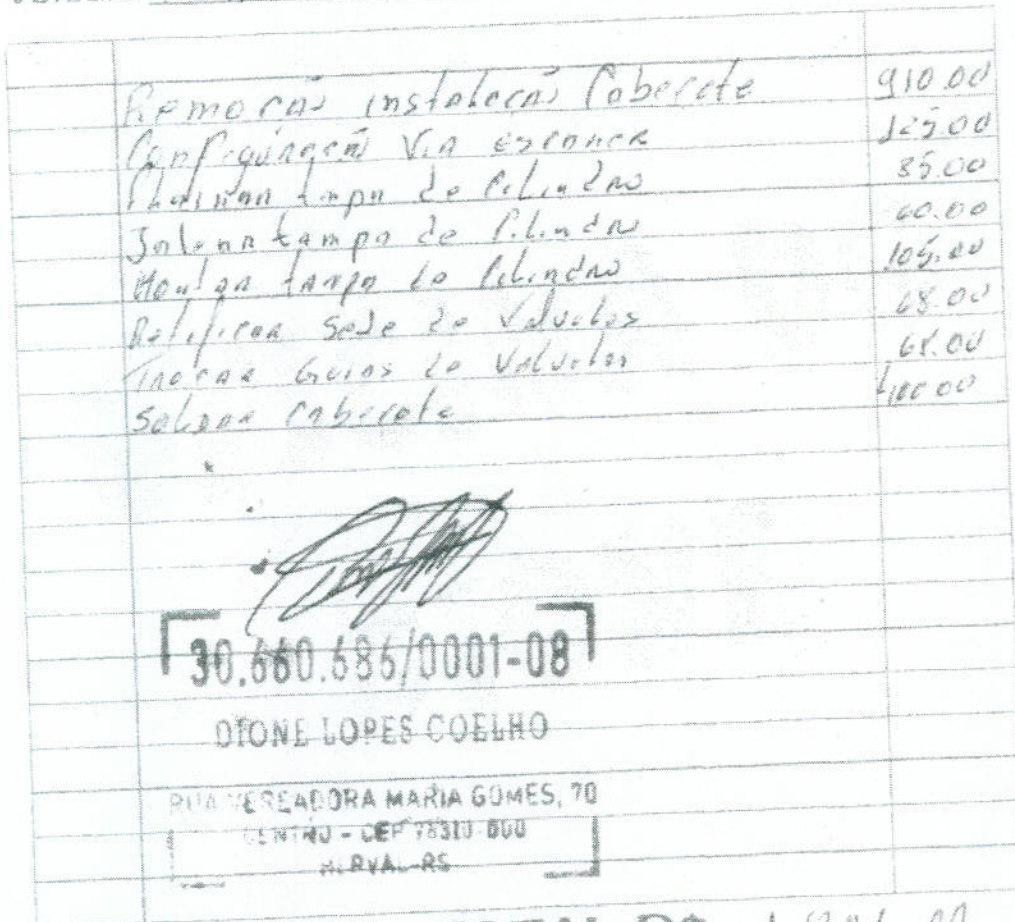 Remoção instalação Cabeçote 910.00
Configuração Via escaner 125.00
tampa de Cilindro 85.00
tampa de Cilindro 60.00
Montar tampa de Cilindro 105.00
Retificar Sede de Valvulas 68.00
Trocar Guias de Valvulas 68.00
Soldar Cabeçote
30.660.686/0001-08
DIONE LOPES COELHO
RUA VEREADORA MARIA GOMES, 70
CENTRO - CEP
HERVAL-RS
R$